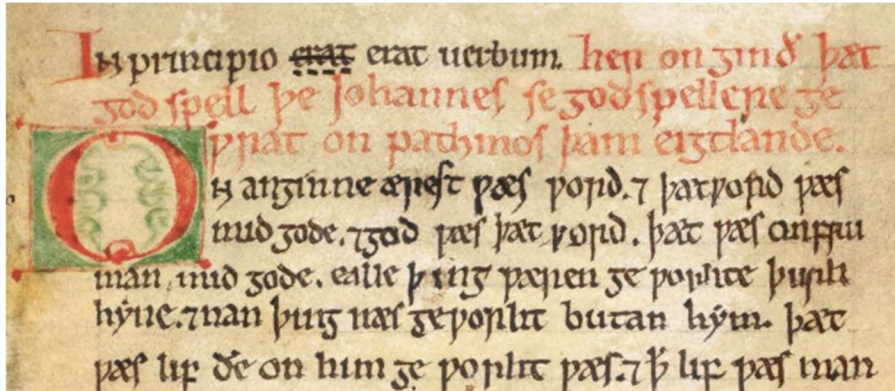 In principio erat erat uerbum. her on ginð þæt
god spell þe Johannes se godspellere ge
ƿrat on pathmos þam eiglande.
On anginne ærest ƿæs ƿord. ⁊ þæt ƿord ƿæs
mid gode. ⁊ god ƿæs þæt ƿord. þæt ƿæs on fru
man mid gode. ealle þing ƿæren ge ƿorhte þurh
hyne. ⁊ nan þing næs geƿorht butan hym. þæt
ƿæs lif ðe on him ge ƿorht ƿæs. ⁊ ꝥ lif ƿæs man